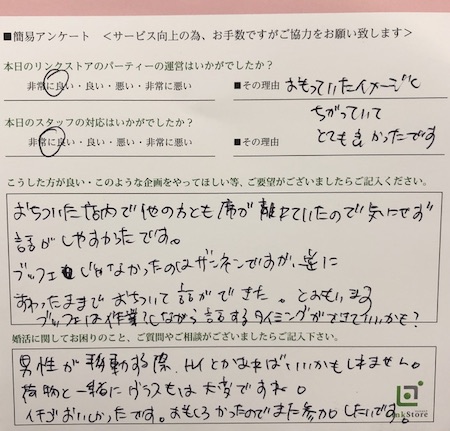 ■簡易アンケート <サービス向上の為、お手数ですがご協力をお願い致します>
本日のリンクストアのパーティーの運営はいかがでしたか？
非常に良い・良い・悪い・非常に悪い
■その理由 おもっていたイメージと
ちがっていて
とても良かったです
本日のスタッフの対応はいかがでしたか？
非常に良い・良い・悪い・非常に悪い
■その理由
こうした方が良い・このような企画をやってほしい等、ご要望がございましたらご記入ください。
おちついた店内で他の方とも席が離れていたので気にせず
話がしやすかったです。
ブッフェじゃなかったのはザンネンですが、逆に
すわったままでおちついて話ができた。とおもいます
ブッフェは作業しながら話するタイミングができていいかも？
婚活に関してお困りのこと、ご質問やご相談がございましたらご記入下さい。
男性が移動する際、トレイとかあればいいかもしれません。
荷物と一緒にグラスもは大変ですね。
イチゴおいしかったです。おもしろかったのでまた参加したいです。
nkStore